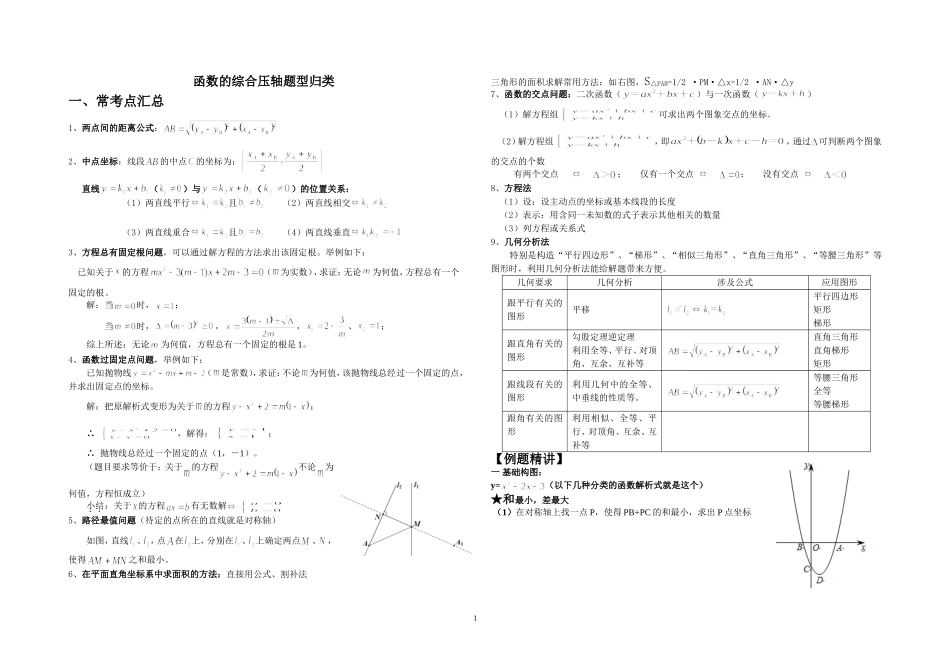 函数的综合压轴题型归类
一、常考点汇总
1、两点间的距离公式：AB=√(y_A-y_B)²+(x_A-x_B)²
2、中点坐标：线段AB的中点C的坐标为：(x_A+x_B/2, y_A+y_B/2)
直线y=k₁x+b₁（k₁≠0）与y=k₂x+b₂（k₂≠0）的位置关系：
（1）两直线平行⇔k₁=k₂且b₁≠b₂ （2）两直线相交⇔k₁≠k₂
（3）两直线重合⇔k₁=k₂且b₁=b₂ （4）两直线垂直⇔k₁k₂=-1
3、方程总有固定根问题，可以通过解方程的方法求出该固定根。举例如下：
已知关于x的方程mx²-3(m-1)x+2m-3=0（m为实数），求证：无论m为何值，方程总有一个
固定的根。
解：当m=0时，x=1；
当m≠0时，Δ=(m-3)²≥0，x=3(m-1)±√Δ/2m，x₁=2-3/m、x₂=1；
综上所述：无论m为何值，方程总有一个固定的根是1。
4、函数过固定点问题，举例如下：
已知抛物线y=x²-mx+m-2（m是常数），求证：不论m为何值，该抛物线总经过一个固定的点，
并求出固定点的坐标。
解：把原解析式变形为关于m的方程y-x²+2=m(1-x)；
∴ { y-x²+2=0 1-x=0，解得：{ y=-1 x=1；
∴ 抛物线总经过一个固定的点（1，－1）。
（题目要求等价于：关于m的方程y-x²+2=m(1-x)不论m为
何值，方程恒成立）
小结：关于x的方程ax=b有无数解⇔{ a=0 b=0
5、路径最值问题（待定的点所在的直线就是对称轴）
如图，直线l₁、l₂，点A在l₂上，分别在l₁、l₂上确定两点M、N，
使得AM+MN之和最小。
6、在平面直角坐标系中求面积的方法：直接用公式、割补法
l₂
l₁
N
M
A
A₁
三角形的面积求解常用方法：如右图，S△PAB=1/2 ·PM·△x=1/2 ·AN·△y
7、函数的交点问题：二次函数（y=ax²+bx+c）与一次函数（y=kx+h）
（1）解方程组{ y=ax²+bx+c y=kx+h 可求出两个图象交点的坐标。
（2）解方程组{ y=ax²+bx+c y=kx+h，即ax²+(b-k)x+c-h=0，通过Δ可判断两个图象
的交点的个数
有两个交点 ⇔ Δ>0； 仅有一个交点 ⇔ Δ=0； 没有交点 ⇔ Δ<0
8、方程法
（1）设：设主动点的坐标或基本线段的长度
（2）表示：用含同一未知数的式子表示其他相关的数量
（3）列方程或关系式
9、几何分析法
特别是构造“平行四边形”、“梯形”、“相似三角形”、“直角三角形”、“等腰三角形”等
图形时，利用几何分析法能给解题带来方便。
几何要求 几何分析 涉及公式 应用图形
跟平行有关的图形 平移 l₁∥l₂⇔k₁=k₂ 平行四边形 矩形 梯形
跟直角有关的图形 勾股定理逆定理 利用全等、平行、对顶角、互余、互补等 AB=√(y_A-y_B)²+(x_A-x_B)² 直角三角形 直角梯形 矩形
跟线段有关的图形 利用几何中的全等、中垂线的性质等。 AB=√(y_A-y_B)²+(x_A-x_B)² 等腰三角形 全等 等腰梯形
跟角有关的图形 利用相似、全等、平行、对顶角、互余、互补等
【例题精讲】
一 基础构图：
y=x²-2x-3（以下几种分类的函数解析式就是这个）
★和最小，差最大
（1）在对称轴上找一点P，使得PB+PC的和最小，求出P点坐标
y
B
O
A
x
C
D
1